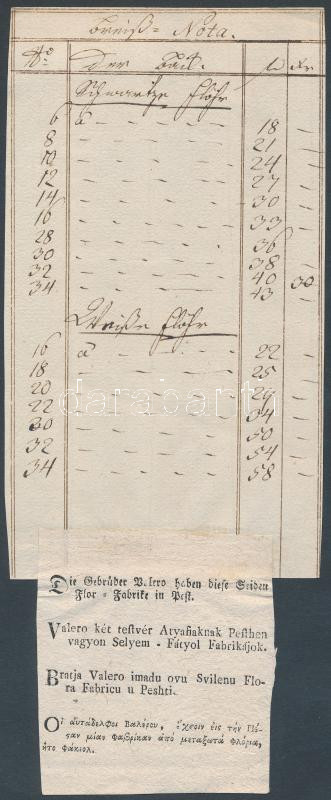 Preiß = Nota.
No der Bait. fl Xr
Schwartze Flöhr
6 a — — — — — 18 —
8 — — — — — 21 —
10 — — — — — 24 —
12 — — — — — 27 —
14 — — — — — 30 —
16 — — — — — 33 —
28 — — — — — 36 —
30 — — — — — 38 —
32 — — — — — 40 —
34 — — — — — 43 30
Weiße Flöhr
16 a — — — — — 22 —
18 — — — — — 25 —
20 — — — — — 29 —
22 — — — — — 34 —
30 — — — — — 50 —
32 — — — — — 54 —
34 — — — — — 58 —
darabanth
Die Gebrüder Valero haben diese Seiden
Flor = Fabrike in Pest.
Valero két testvér Atyafiaknak Pesthen
vagyon Selyem - Fátyol Fabrikájok.
Bratja Valero imadu ovu Svilenu Flo-
ra Fabricu u Peshti.
Οἱ αὐτάδελφοι Βαλέρου, ἔχουν εἰς τὴν Πέ-
σαν μίαν φάβρικαν ἀπὸ μεταξωτὰ φλόρια,
ἤτο φάκιολ.